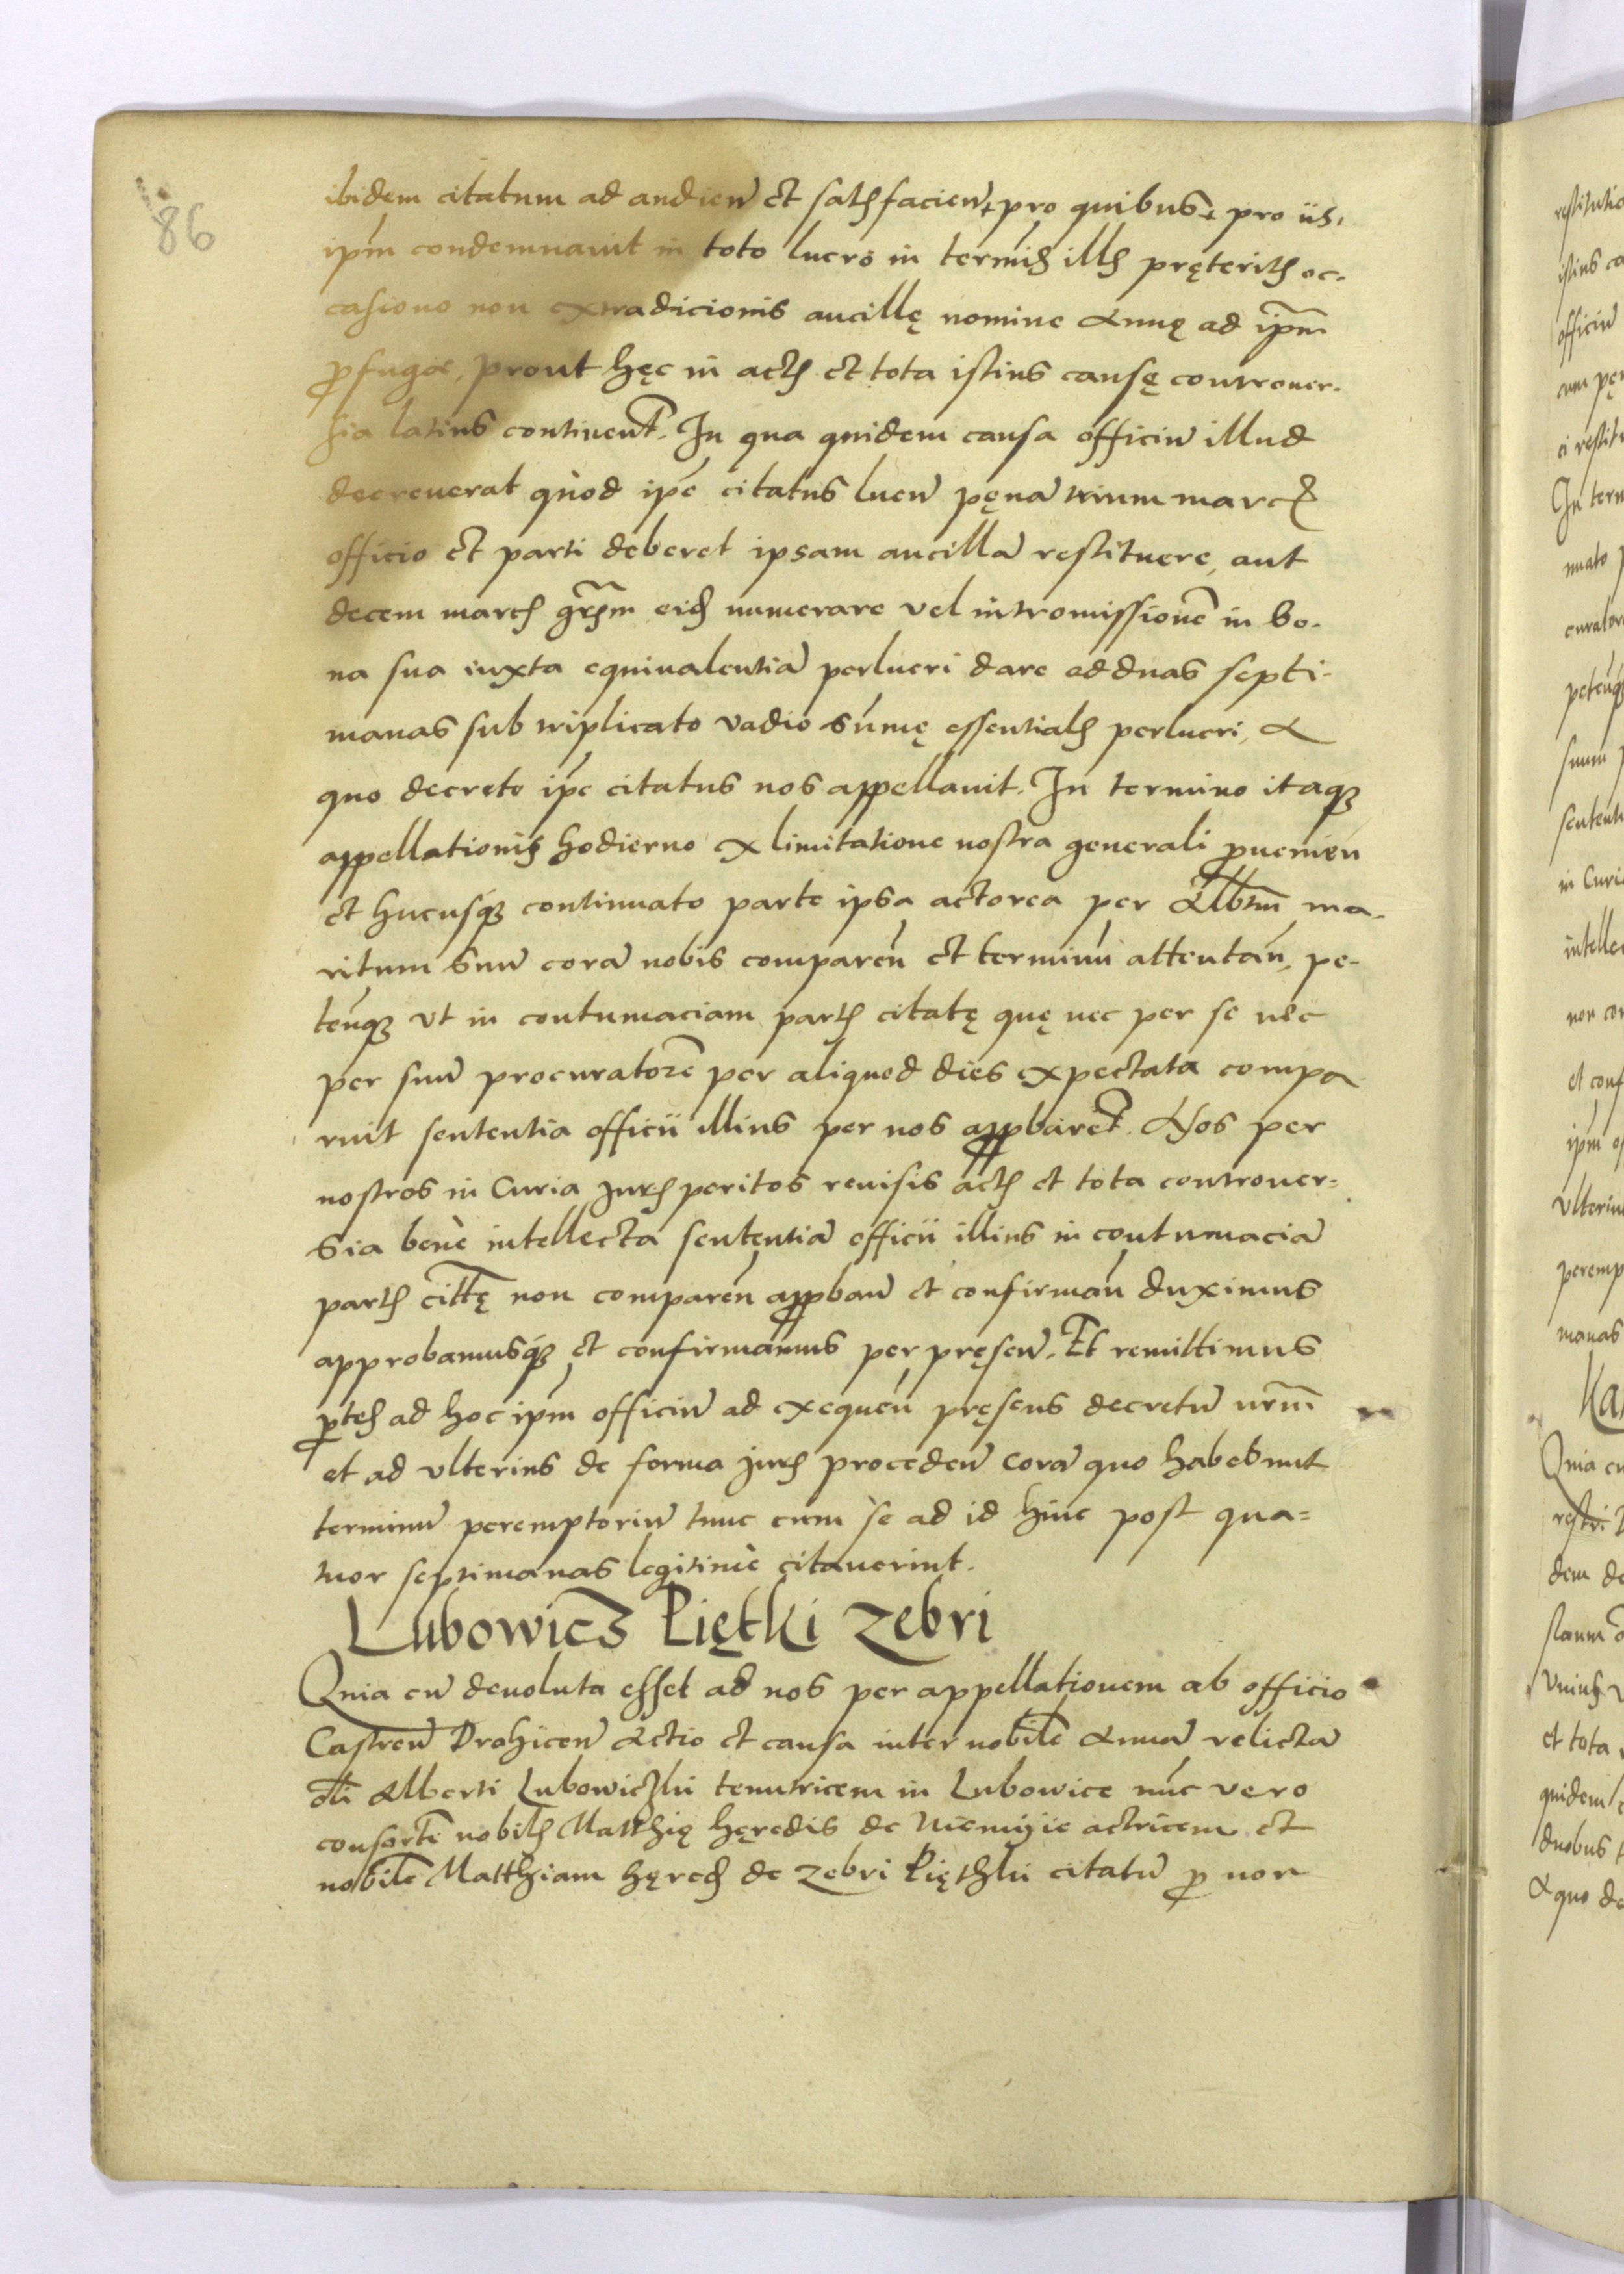 86
ibidem citatum ad audien̄ et satisfacien̄ pro quibus pro iis,
ipm̄ condemnauit in toto lucro in terminis illis pręteritis oc-
casione non extradicionis ancillę nomine Annę ad ipm̄
profugae, prout hęc in actis et tota istius causę controuer-
sia latius continent̄. In qua quidem causa officiū illud
decreuerat quòd ip̄e citatus luen̄ pęnā trium marcar
officio et parti deberet ipsam ancillā restituere, aut
decem marcis gr̄sm eid numerare vel intromissionē in bo-
na sua iuxta equiualentiā perlucri dare ad duas septi-
manas sub triplicato vadio sūmę essentialis perlucri, A
quo decreto ip̄e citatus nos appellauit. In termino itaq̧
appellationis hodierno ex limitatione nostra generali prouenien̄
et hucusq̧ continuato parte ipsa actorea per Albtm̄ ma-
ritum suū corā nobis comparen̄ et terminū attentan̄, pe-
tenq̧ vt in contumaciam partis citatę quę nec per se nec
per suū procuratorē per aliquod dies expectata compa
ruit sententia officii illius per nos approbaret̄. Nos per
nostros in Curia juris peritos reuisis actis et tota controuer-
sia benè intellecta sententiā officii illius in contumaciā
partis citt̄ę non comparen̄ approban̄ et confirman̄ duximus
approbamusq̧ et confirmamus per pręsen̄. Et remittimus
ptes ad hoc ipm̄ officiū ad exequen̄ pręsens decretū nrm̄
et ad vlterius de forma juris proceden̄ corā quo habebunt
terminū peremptoriū tunc cum se ad id hinc post qua-
tuor septimanas legitimè citauerint.
Lubowicz Piętki Zebri
Quia cū deuoluta esset ad nos per appellationem ab officio
Castren̄ Drohicen̄ Actio et causa inter nobilē Annā relictā
olī Alberti Lubowiczki tenutricem in Lubowice nūc vero
consortē nobilis Matthię hęredis de Niemyie actricem et
nobilē Matthiam hęred de Zebri Pięthki citatū pro non